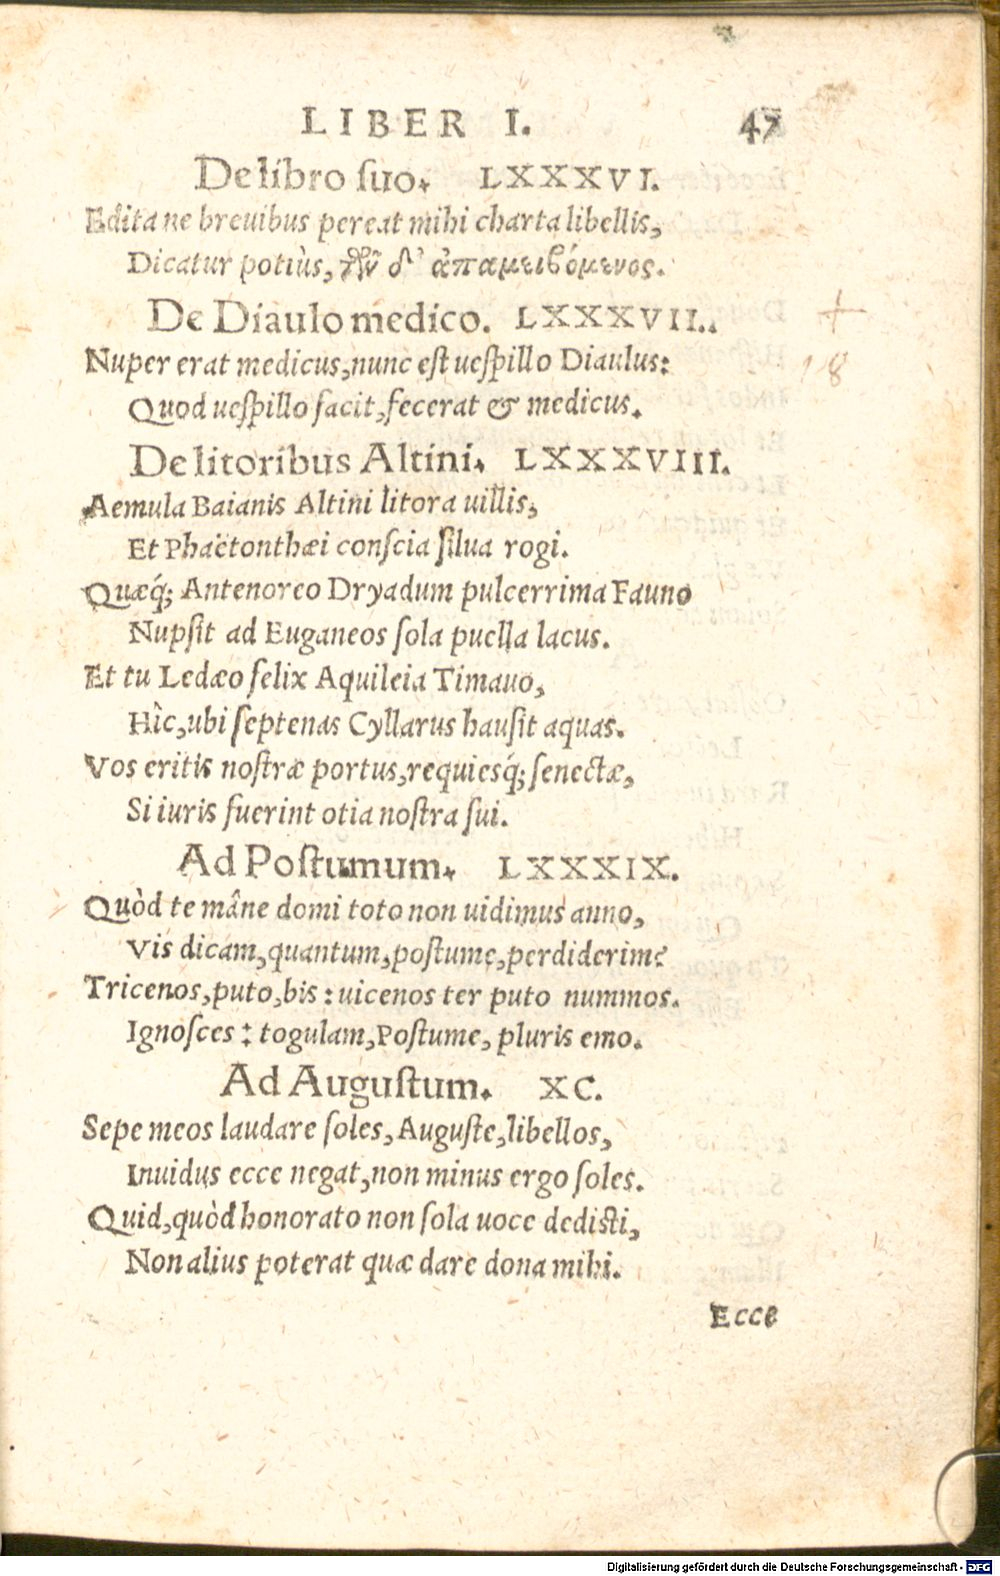 LIBER I. 47
De libro suo. LXXXVI.
Edita ne brevibus pereat mihi charta libellis,
Dicatur potiùs, τὸν δ' ἀπαμειβόμενος.
De Diaulo medico. LXXXVII..
Nuper erat medicus, nunc est uespillo Diaulus:
Quod uespillo facit, fecerat & medicus.
De litoribus Altini. LXXXVIII.
Aemula Baianis Altini litora uillis,
Et Phaëtonthæi conscia silua rogi.
Quæq́; Antenoreo Dryadum pulcerrima Fauno
Nupsit ad Euganeos sola puella lacus.
Et tu Ledæo felix Aquileia Timavo,
Hîc, ubi septenas Cyllarus hausit aquas.
Vos eritis nostræ portus, requiesq́; senectæ,
Si iuris fuerint otia nostra sui.
Ad Postumum. LXXXIX.
Quòd te mâne domi toto non uidimus anno,
Vis dicam, quantum, postume, perdiderim?
Tricenos, puto, bis: uicenos ter puto nummos.
Ignosces: togulam, Postume, pluris emo.
Ad Augustum. XC.
Sepe meos laudare soles, Auguste, libellos,
Inuidus ecce negat, non minus ergo soles.
Quid, quòd honorato non sola uoce dedisti,
Non alius poterat quæ dare dona mihi.
Ecce
+
18
Digitalisierung gefördert durch die Deutsche Forschungsgemeinschaft - DFG